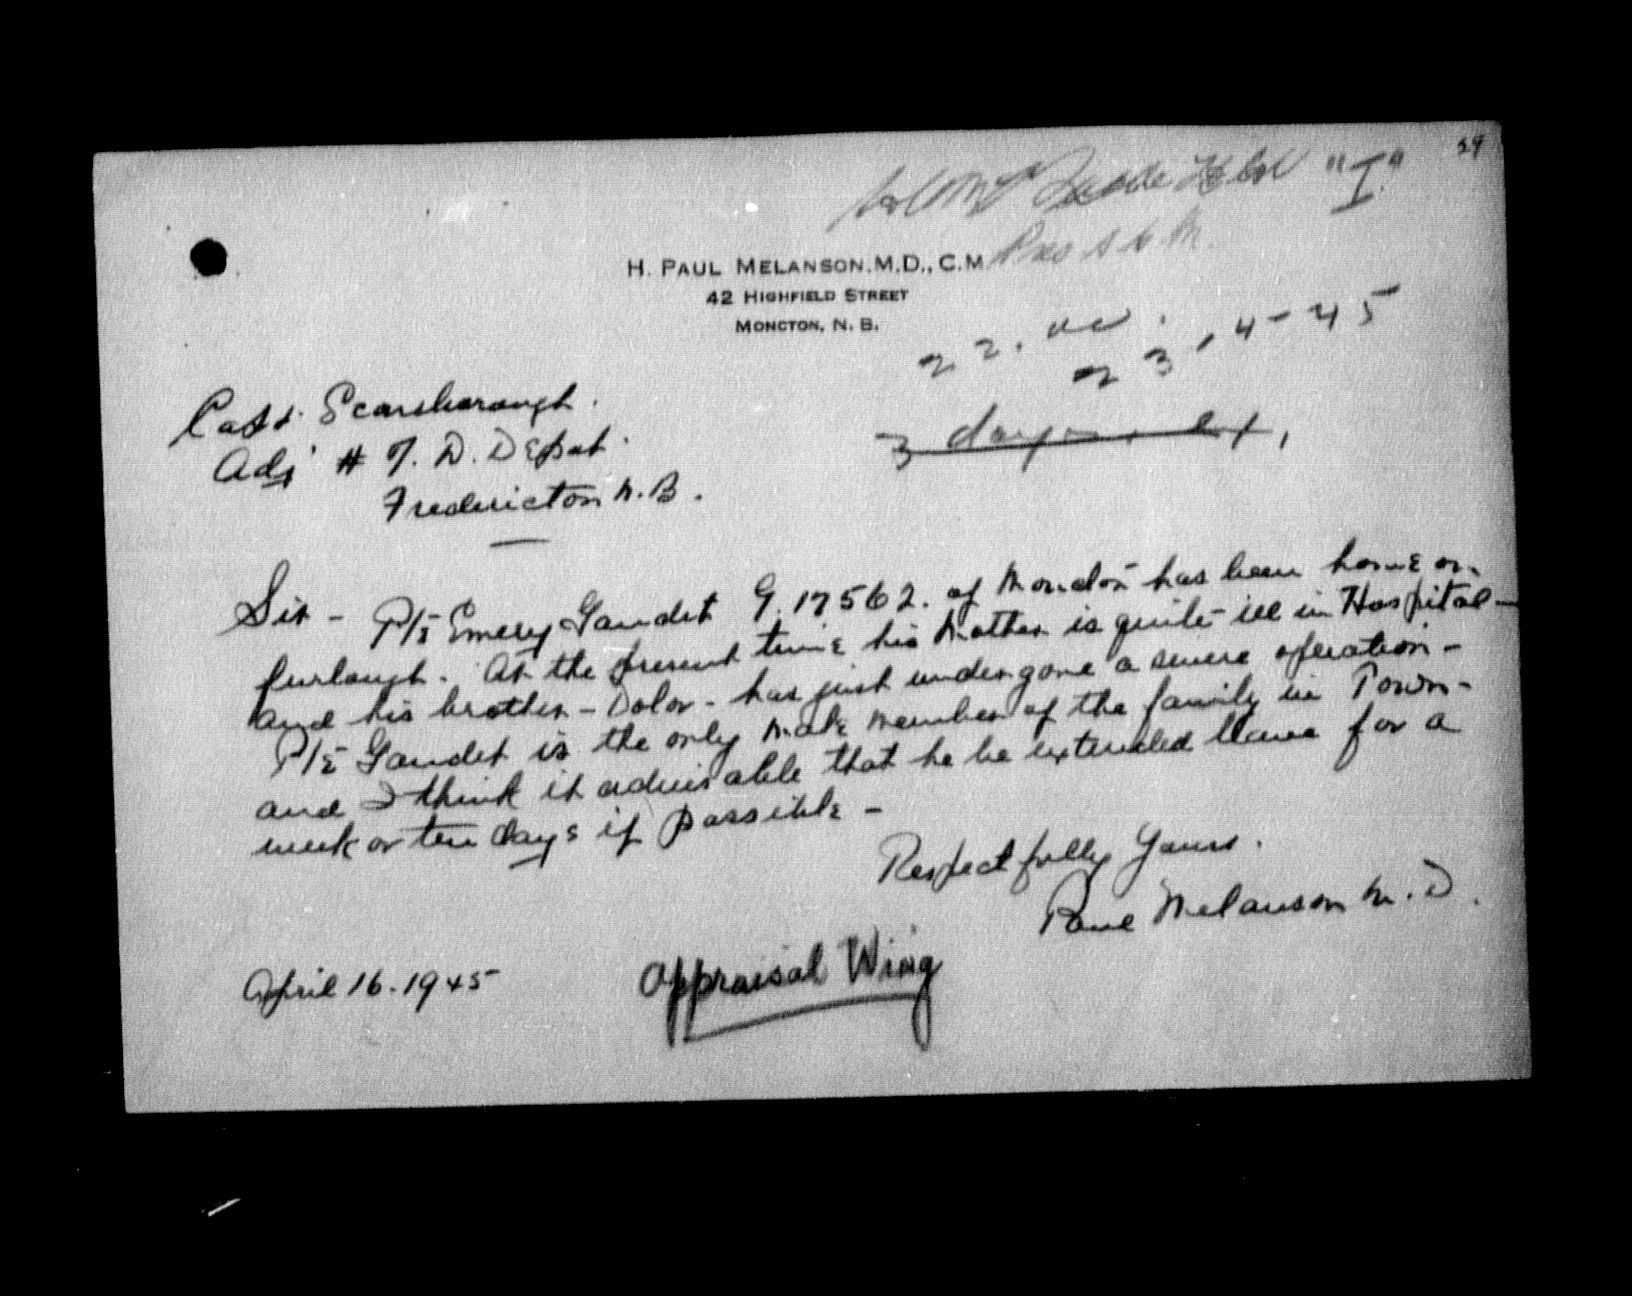 29
"I"
H. PAUL MELANSON, M.D., C.M.
42 HIGHFIELD STREET
MONCTON, N. B.
22.
23, 4-45
3 days ext,
Capt. Scarsborough.
Adj # 7. D. Depot.
Fredericton N.B.
Sir - Pte Emery Gaudet G. 17562. of Moncton has been home on
furlough. At the present time his Mother is quite ill in Hospital -
and his brother - Dolor - has just undergone a severe operation -
Pte Gaudet is the only Male Member of the family in Town -
and I think it advisable that he be extended leave for a
week or ten days if possible -
Respectfully Yours.
Paul Melanson M.D.
April 16. 1945
Appraisal Wing